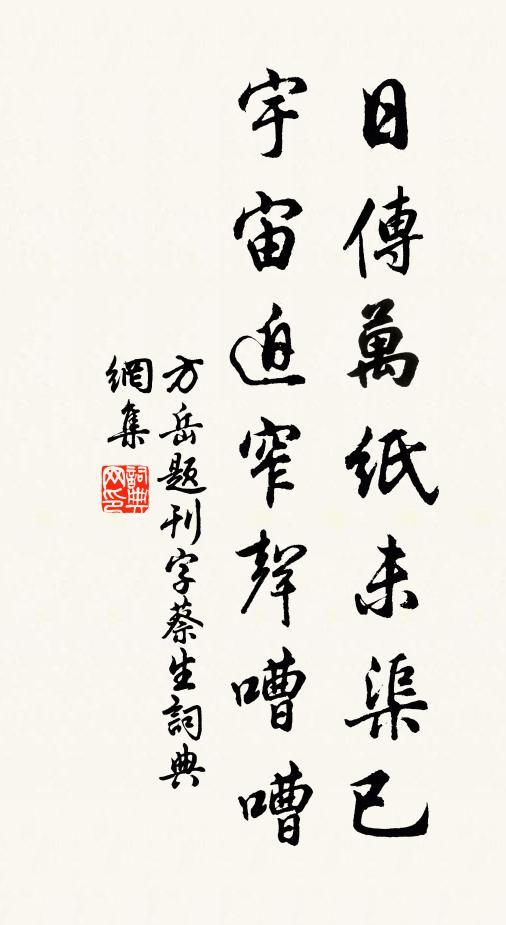 日傳萬紙未渠已
宇宙迫窄聲嘈嘈
方岳題刊字蔡生詞典
網集
詞典
网印